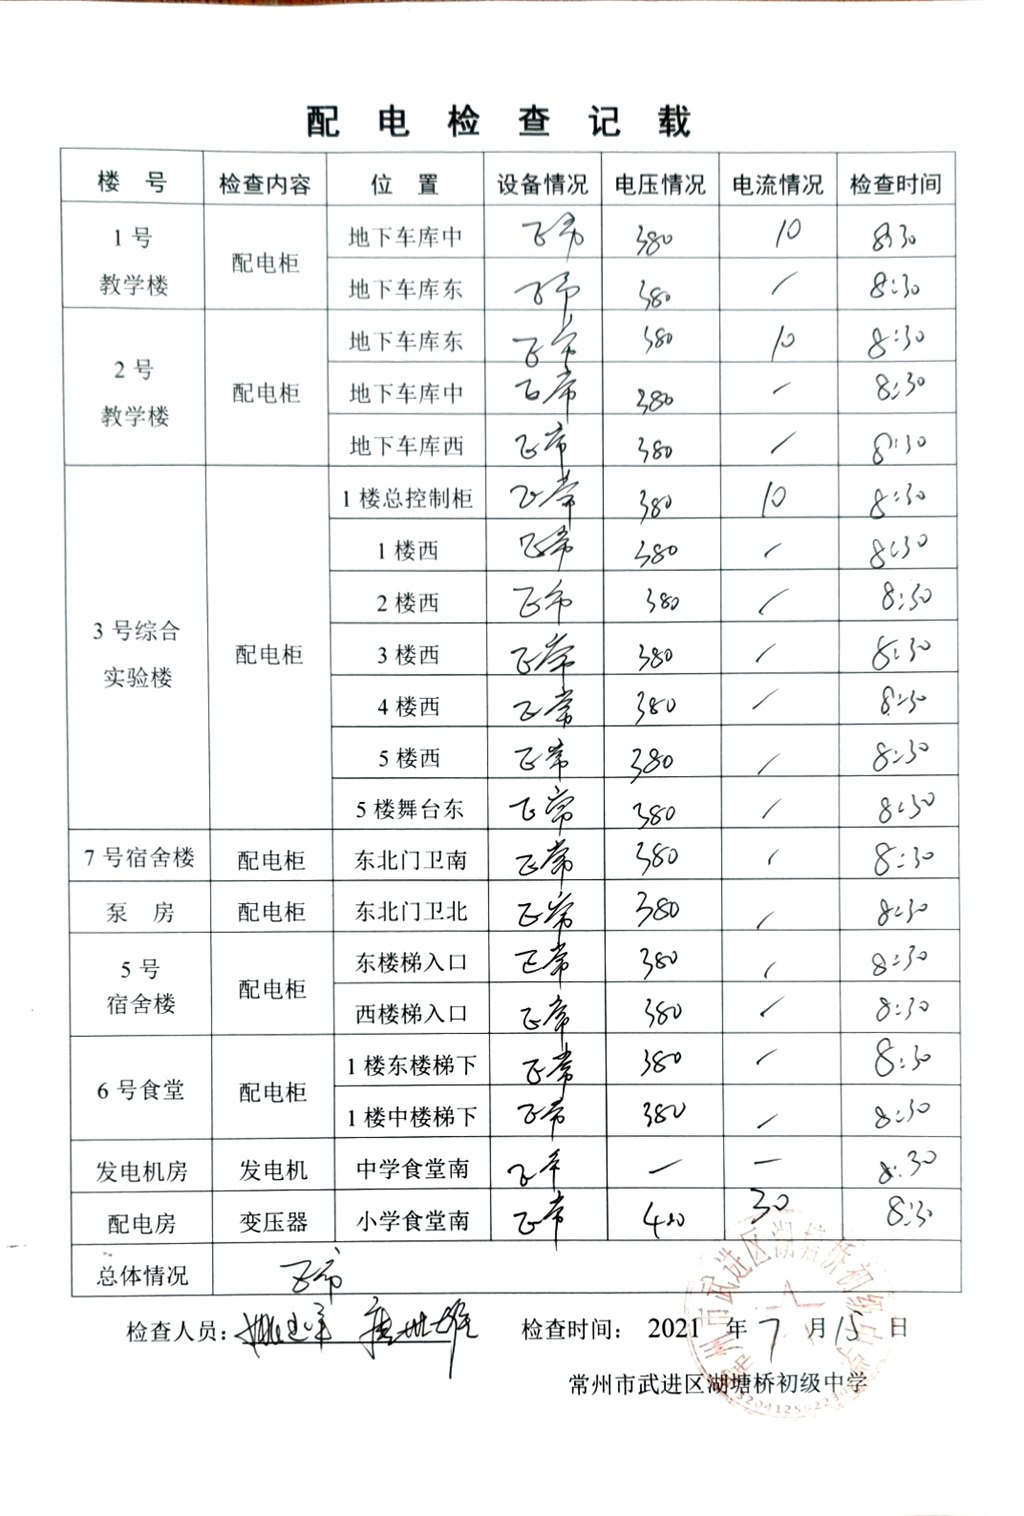 配电检查记载
楼号 检查内容 位置 设备情况 电压情况 电流情况 检查时间
1号教学楼 配电柜 地下车库中 正常 380 10 8:30
地下车库东 正常 380 / 8:30
2号教学楼 配电柜 地下车库东 正常 380 10 8:30
地下车库中 正常 380 / 8:30
地下车库西 正常 380 / 8:30
3号综合实验楼 配电柜 1楼总控制柜 正常 380 10 8:30
1楼西 正常 380 / 8:30
2楼西 正常 380 / 8:30
3楼西 正常 380 / 8:30
4楼西 正常 380 / 8:30
5楼西 正常 380 / 8:30
5楼舞台东 正常 380 / 8:30
7号宿舍楼 配电柜 东北门卫南 正常 380 / 8:30
泵房 配电柜 东北门卫北 正常 380 / 8:30
5号宿舍楼 配电柜 东楼梯入口 正常 380 / 8:30
西楼梯入口 正常 380 / 8:30
6号食堂 配电柜 1楼东楼梯下 正常 380 / 8:30
1楼中楼梯下 正常 380 / 8:30
发电机房 发电机 中学食堂南 正常 — — 8:30
配电房 变压器 小学食堂南 正常 400 30 8:30
总体情况 正常
检查人员: 检查时间: 2021年7月15日
常州市武进区湖塘桥初级中学